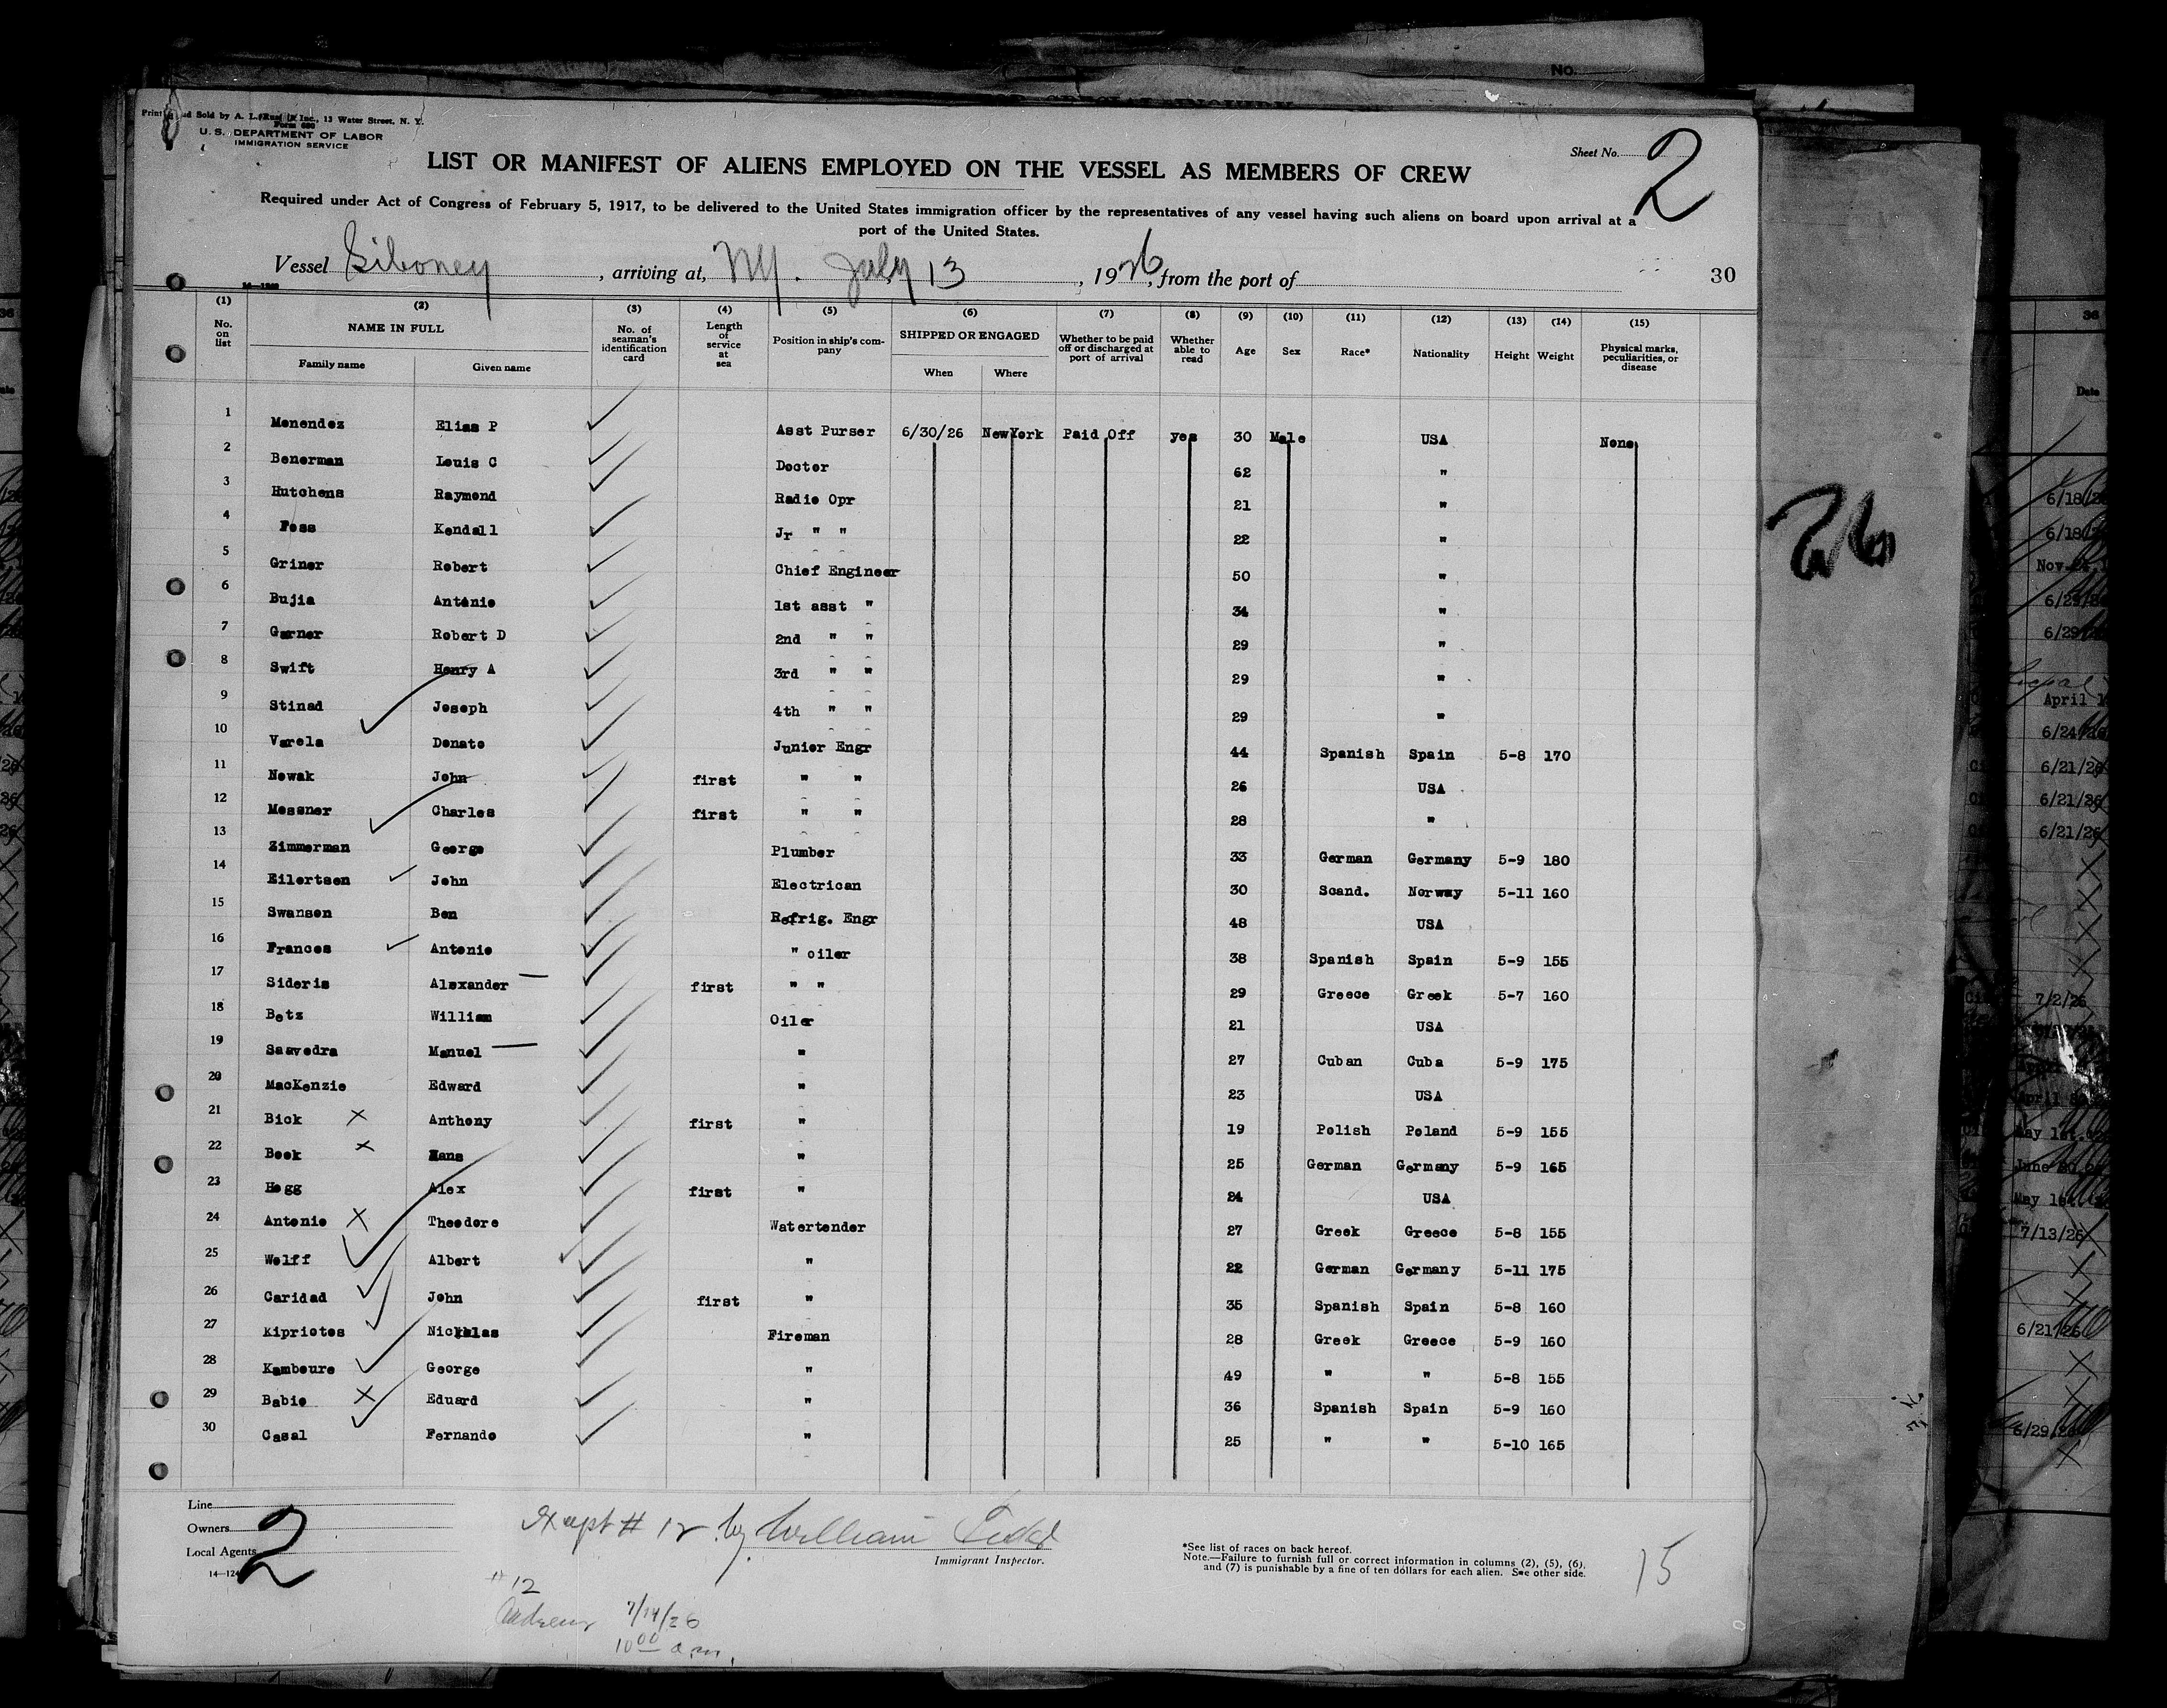 No.
Sold by A. L. Inc., 13 Water Street, N. Y.
Form 680
U. S. DEPARTMENT OF LABOR
IMMIGRATION SERVICE
Sheet No. 2
LIST OR MANIFEST OF ALIENS EMPLOYED ON THE VESSEL AS MEMBERS OF CREW
Required under Act of Congress of February 5, 1917, to be delivered to the United States immigration officer by the representatives of any vessel having such aliens on board upon arrival at a
port of the United States.
Vessel Siboney, arriving at, NY. July 13, 1926, from the port of
30
(1) (2) (3) (4) (5) (6) (7) (8) (9) (10) (11) (12) (13) (14) (15)
No. on list NAME IN FULL Family name Given name No. of seaman's identification card Length of service at sea Position in ship's company SHIPPED OR ENGAGED When Where Whether to be paid off or discharged at port of arrival Whether able to read Age Sex Race* Nationality Height Weight Physical marks, peculiarities, or disease
1 Menendez Elias P Asst Purser 6/30/26 NewYork Paid Off yes 30 Male USA None
2 Benerman Louis C Doctor 62 "
3 Hutchens Raymond Radio Opr 21 "
4 Foss Kendall Jr " " 22 "
5 Griner Robert Chief Engineer 50 "
6 Bujia Antonio 1st asst " 34 "
7 Garner Robert D 2nd " " 29 "
8 Swift Henry A 3rd " " 29 "
9 Stinad Joseph 4th " " 29 "
10 Varela Donato Junior Engr 44 Spanish Spain 5-8 170
11 Nowak John first " " 26 USA
12 Messner Charles first " " 28 "
13 Zimmerman George Plumber 33 German Germany 5-9 180
14 Eilertsen John Electrican 30 Scand. Norway 5-11 160
15 Swanson Ben Refrig. Engr 48 USA
16 Frances Antonio " oiler 38 Spanish Spain 5-9 155
17 Sideris Alexander first " " 29 Greece Greek 5-7 160
18 Betz William Oiler 21 USA
19 Saavedra Manuel " 27 Cuban Cuba 5-9 175
20 MacKenzie Edward " 23 USA
21 Bick Anthony first " 19 Polish Poland 5-9 155
22 Book Hans " 25 German Germany 5-9 165
23 Hogg Alex first " 24 USA
24 Antonio Theodore Watertender 27 Greek Greece 5-8 155
25 Wolff Albert " 22 German Germany 5-11 175
26 Caridad John first " 35 Spanish Spain 5-8 160
27 Kipriotes Nicholas Fireman 28 Greek Greece 5-9 160
28 Kamboure George " 49 " " 5-8 155
29 Babio Eduard " 36 Spanish Spain 5-9 160
30 Casal Fernando " 25 " " 5-10 165
26
Line
Owners
Local Agents
2
Except # 12 by William Todd
Immigrant Inspector.
*See list of races on back hereof.
Note.—Failure to furnish full or correct information in columns (2), (5), (6),
and (7) is punishable by a fine of ten dollars for each alien. See other side.
15
# 12
7/14/26
10 00 a.m.
36
Date
6/18/2
6/18/2
April 1
6/21/26
6/21/26
6/21/26
7/2/26
7/13/26
6/21/26
6/29/26